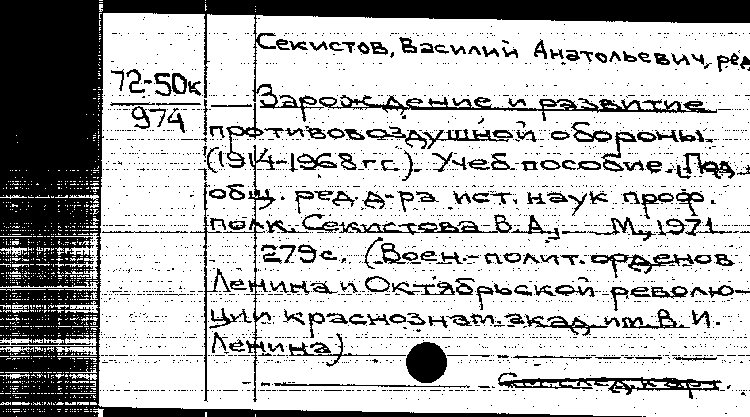 Секистов, Василий Анатольевич, ред
72-50к
974
Зарождение и развитие
противовоздушной обороны.
(1914-1968 гг.). Учеб. пособие. Под
общ. ред. д-ра ист. наук проф.
полк. Секистова В. А., М., 1971
279 с. (Воен.-полит. орденов
Ленина и Октябрьской револю-
ции краснознам. акад. им. В. И.
Ленина).
См. след. карт.